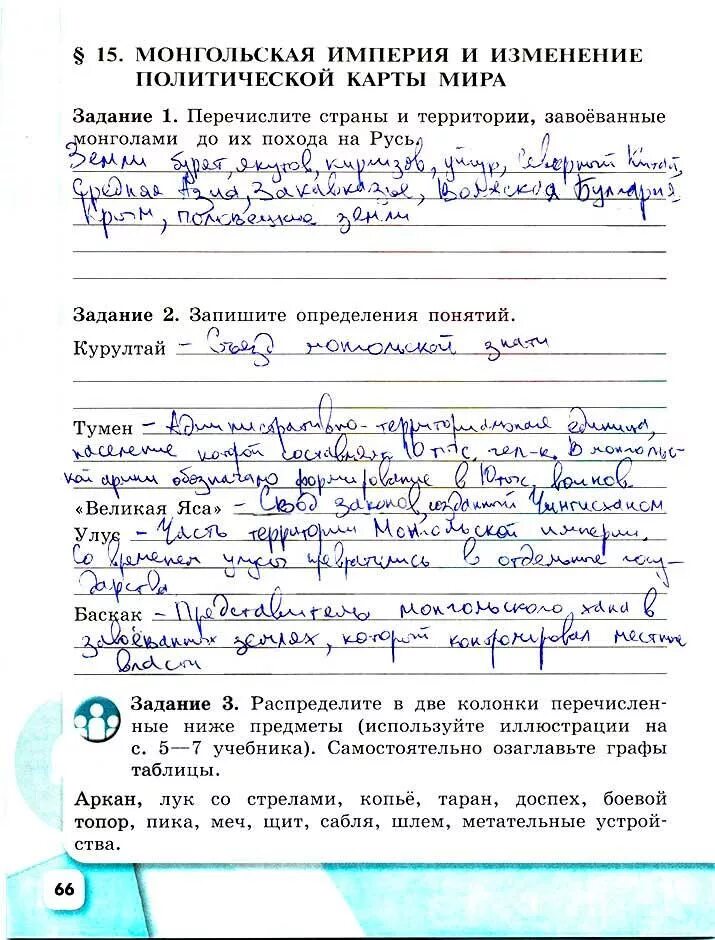 § 15. МОНГОЛЬСКАЯ ИМПЕРИЯ И ИЗМЕНЕНИЕ
ПОЛИТИЧЕСКОЙ КАРТЫ МИРА
Задание 1. Перечислите страны и территории, завоёванные
монголами до их похода на Русь.
Земли бурят, якутов, киргизов, уйгур, Северный Китай,
Средняя Азия, Закавказье, Волжская Булгария,
Крым, половецкие земли
Задание 2. Запишите определения понятий.
Курултай – Съезд монгольской знати
Тумен – Административно-территориальная единица,
население которой составляло 10 тыс. чел-к. В монгольс-
кой армии обозначало формирование в 10 тыс. воинов
«Великая Яса» – Свод законов, созданный Чингисханом
Улус – Часть территории Монгольской империи.
Со временем улусы превратились в отдельные госу-
дарства
Баскак – Представитель монгольского хана в
завоёванных землях, который контролировал местные
власти
Задание 3. Распределите в две колонки перечислен-
ные ниже предметы (используйте иллюстрации на
с. 5—7 учебника). Самостоятельно озаглавьте графы
таблицы.
Аркан, лук со стрелами, копьё, таран, доспех, боевой
топор, пика, меч, щит, сабля, шлем, метательные устрой-
ства.
66